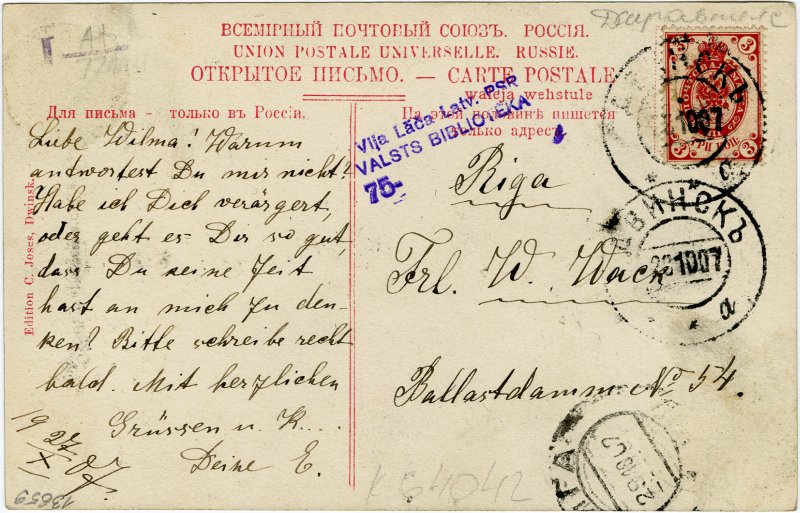 ВСЕМІРНЫЙ ПОЧТОВЫЙ СОЮЗЪ. РОССІЯ.
UNION POSTALE UNIVERSELLE. RUSSIE.
ОТКРЫТОЕ ПИСЬМО. — CARTE POSTALE
Для письма - только въ Россіи.
На этой половинѣ пишется
только адресъ.
Viļa Lāča Latv. PSR
VALSTS BIBLIOTĒKA
75-
3 3
3 3
ТРИ КОП.
1007
ДВИНСКЪ
281007
а
Liebe Wilma! Warum
antwortest Du mir nicht?
Habe ich Dich verärgert,
oder geht es Dir so gut,
dass Du keine Zeit
hast an mich zu den-
ken? Bitte schreibe recht
bald. Mit herzlichen
Grüssen u. K....
Deine E.
19 27/X 07
Riga
Frl. W. Wack
Ballastdamm № 54.
29 10 07
K 64042
13659
Edition C. Joses, Dwinsk.